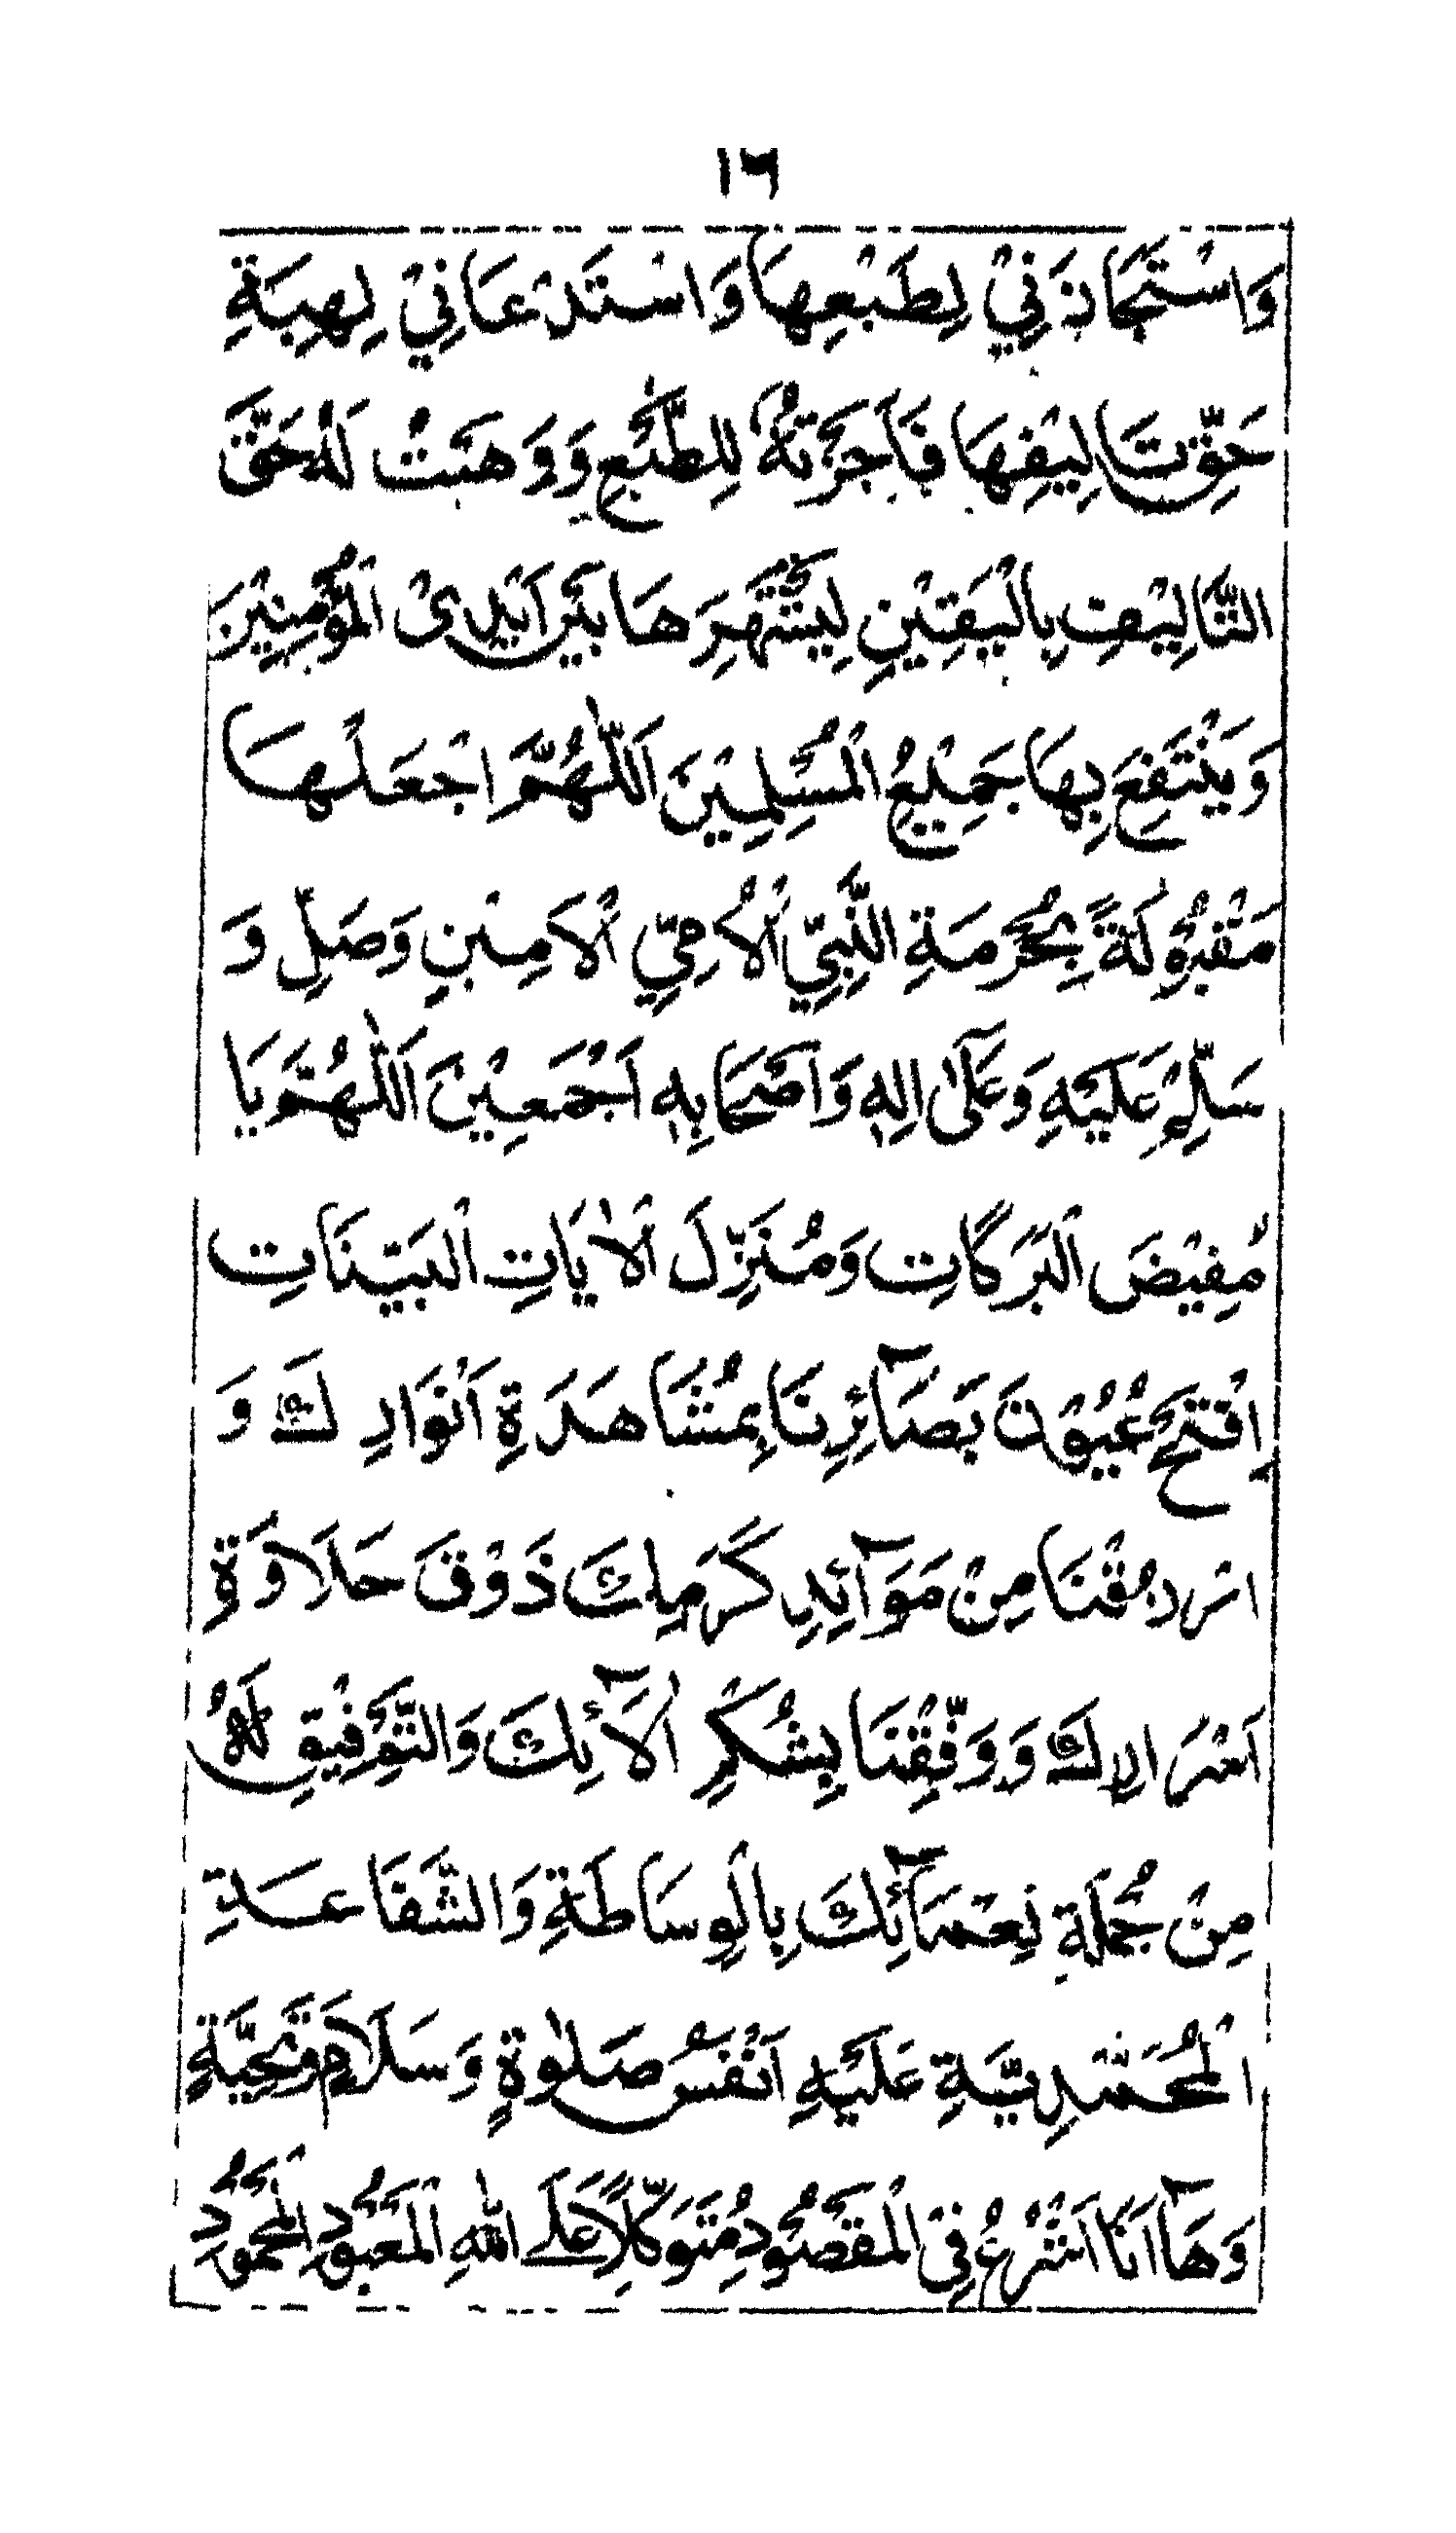 ١٦
وَاسْتَجَازَنِيْ لِطَبْعِهَا وَاسْتَدْعَانِيْ لِهِبَةِ
حَقِّ تَالِيْفِهَا فَاَجَزْتُهٗ لِلطَّبْعِ وَوَهَبْتُ لَهٗ حَقَّ
التَّالِيْفِ بِالْيَقِيْنِ لِيُشْتَهِرَهَا بَيْنَ اَيْدِىْ الْمُؤْمِنِيْنَ
وَيَنْتَفِعَ بِهَا جَمِيْعُ الْمُسْلِمِيْنَ اَللّٰهُمَّ اجْعَلْهَا
مَقْبُوْلَةً بِحُرْمَةِ النَّبِيِّ الْاُمِّيِّ الْاَمِيْنِ وَصَلِّ وَ
سَلِّمْ عَلَيْهِ وَعَلٰى اٰلِهٖ وَاَصْحَابِهٖ اَجْمَعِيْنَ اَللّٰهُمَّ يَا
مُفِيْضَ الْبَرَكَاتِ وَمُنَزِّلَ الْاٰيَاتِ الْبَيِّنَاتِ
اِفْتَحْ عُيُوْنَ بَصَآئِرِنَا بِمُشَاهَدَةِ اَنْوَارِكَ وَ
ارْزُقْنَا مِنْ مَوَآئِدِ كَرَمِكَ ذَوْقَ حَلَاوَةِ
اَسْرَارِكَ وَوَفِّقْنَا بِشُكْرِ اٰلَآئِكَ وَالتَّوْفِيْقِ لَهٗ
مِنْ جُمْلَةِ نِعْمَآئِكَ بِالْوِسَاطَةِ وَالشَّفَاعَةِ
الْمُحَمَّدِيَّةِ عَلَيْهِ اَنْفَسُ صَلٰوةٍ وَسَلَامٍ وَتَحِيَّةٍ
وَهَآ اَنَا اَشْرَعُ فِي الْمَقْصُوْدِ مُتَوَكِّلًا عَلَى اللّٰهِ الْمَعْبُوْدِ الْمَحْمُوْدِ